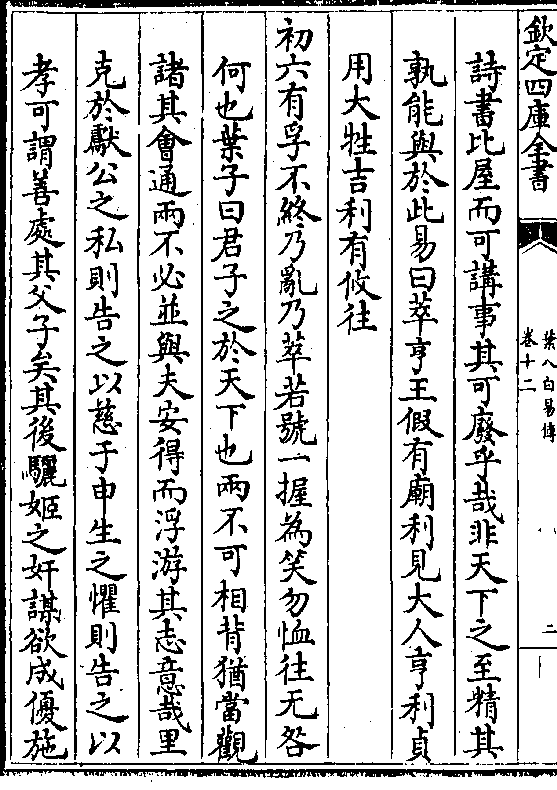 欽定四庫全書
葉八白易傳
卷十二
二
詩書比屋而可講事其可廢乎哉非天下之至精其
孰能與於此易曰萃亨王假有廟利見大人亨利貞
用大牲吉利有攸往
初六有孚不終乃亂乃萃若號一握為笑勿恤往无咎
何也葉子曰君子之於天下也兩不可相背猶當觀
諸其會通兩不必並與夫安得而浮游其志意哉里
克於獻公之私則告之以慈于申生之懼則告之以
孝可謂善處其父子矣其後驪姬之奸謀欲成優施